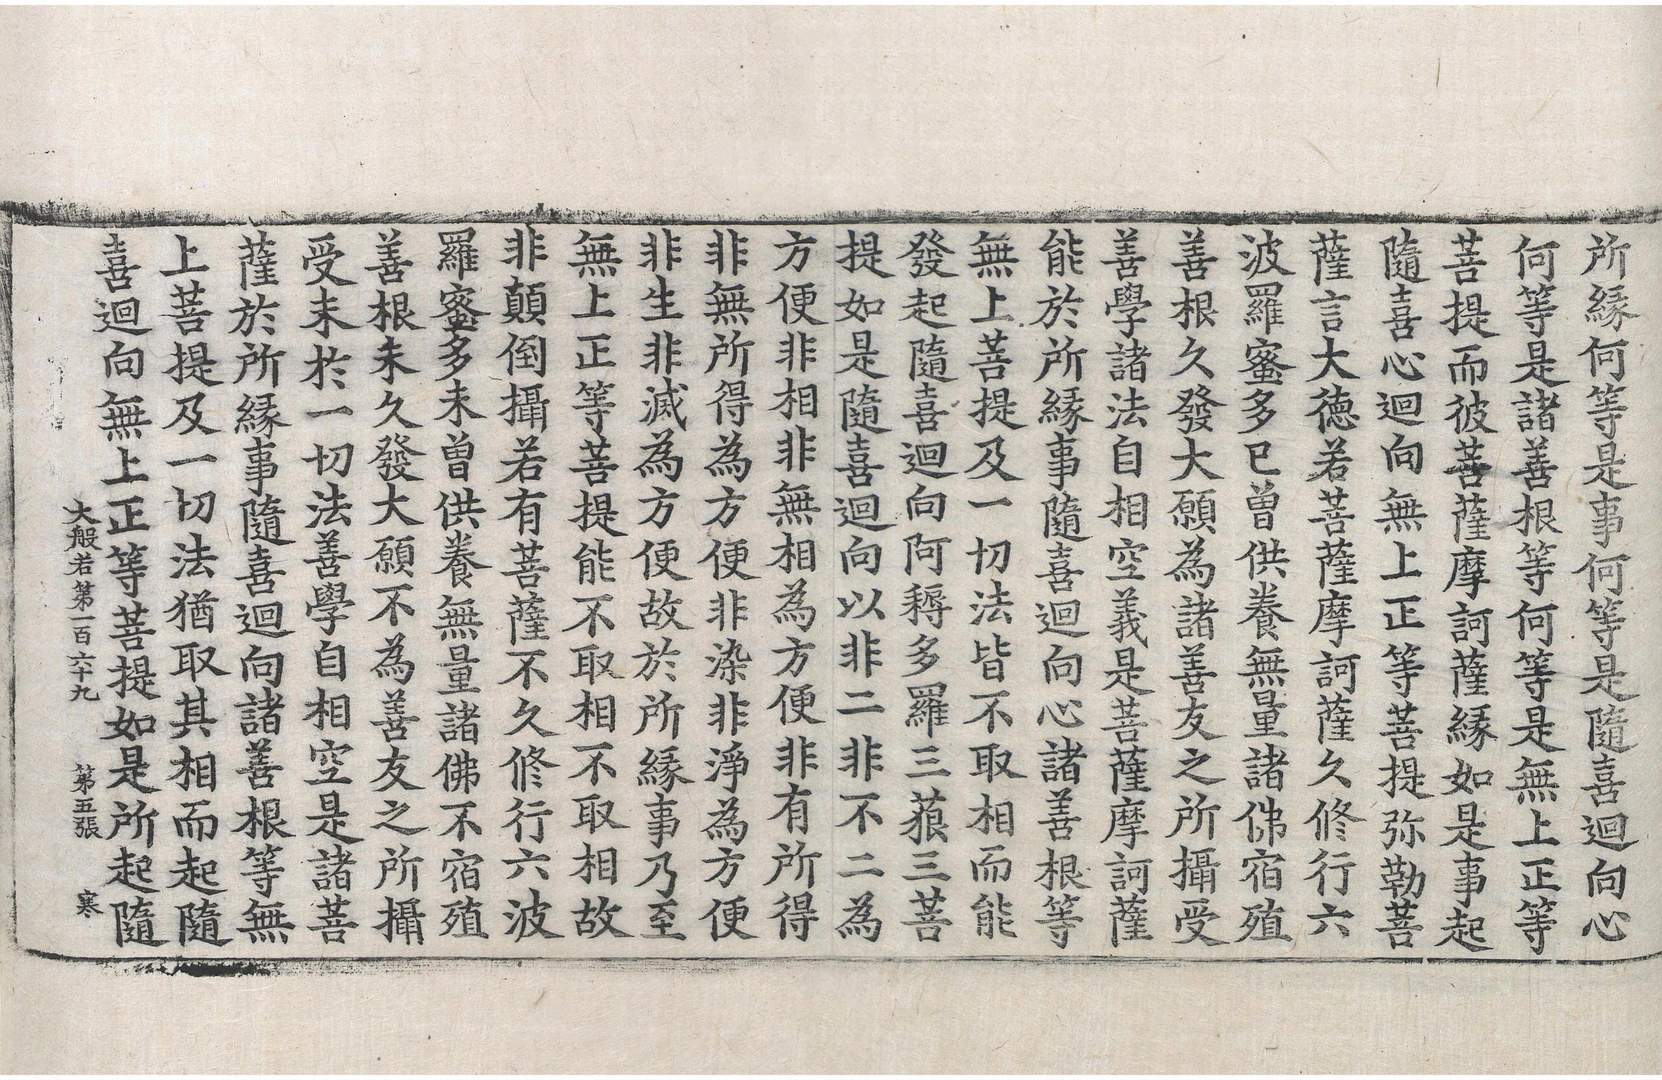 所緣何等是事何等是隨喜迴向心
何等是諸善根等何等是無上正等
菩提而彼菩薩摩訶薩緣如是事起
隨喜心迴向無上正等菩提弥勒菩
薩言大德若菩薩摩訶薩久修行六
波羅蜜多已曾供養無量諸佛宿殖
善根久發大願為諸善友之所攝受
善學諸法自相空義是菩薩摩訶薩
能於所緣事隨喜迴向心諸善根等
無上菩提及一切法皆不取相而能
發起隨喜迴向阿耨多羅三藐三菩
提如是隨喜迴向以非二非不二為
方便非相非無相為方便非有所得
非無所得為方便非染非淨為方便
非生非滅為方便故於所緣事乃至
無上正等菩提能不取相不取相故
非顛倒攝若有菩薩不久修行六波
羅蜜多未曾供養無量諸佛不宿殖
善根未久發大願不為善友之所攝
受未於一切法善學自相空是諸菩
薩於所緣事隨喜迴向諸善根等無
上菩提及一切法猶取其相而起隨
喜迴向無上正等菩提如是所起隨
大般若第一百六十九 第五張 寒